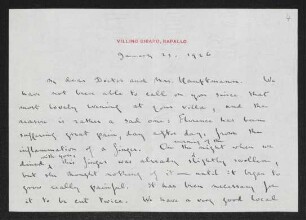 4
VILLINO CHIARO, RAPALLO
January 21. 1926
My dear Doctor and Mrs. Hauptmann. We
have not been able to call on you since that
most lovely evening at your villa, and the
reason is rather a sad one; Florence has been
suffering great pain, day after day, from the
inflammation of a finger. On the evening of the night when we
dined with you, this finger was already slightly swollen,
but she thought nothing of it until it began to
grow really painful. It has been necessary for
it to be cut twice. We have a very good local